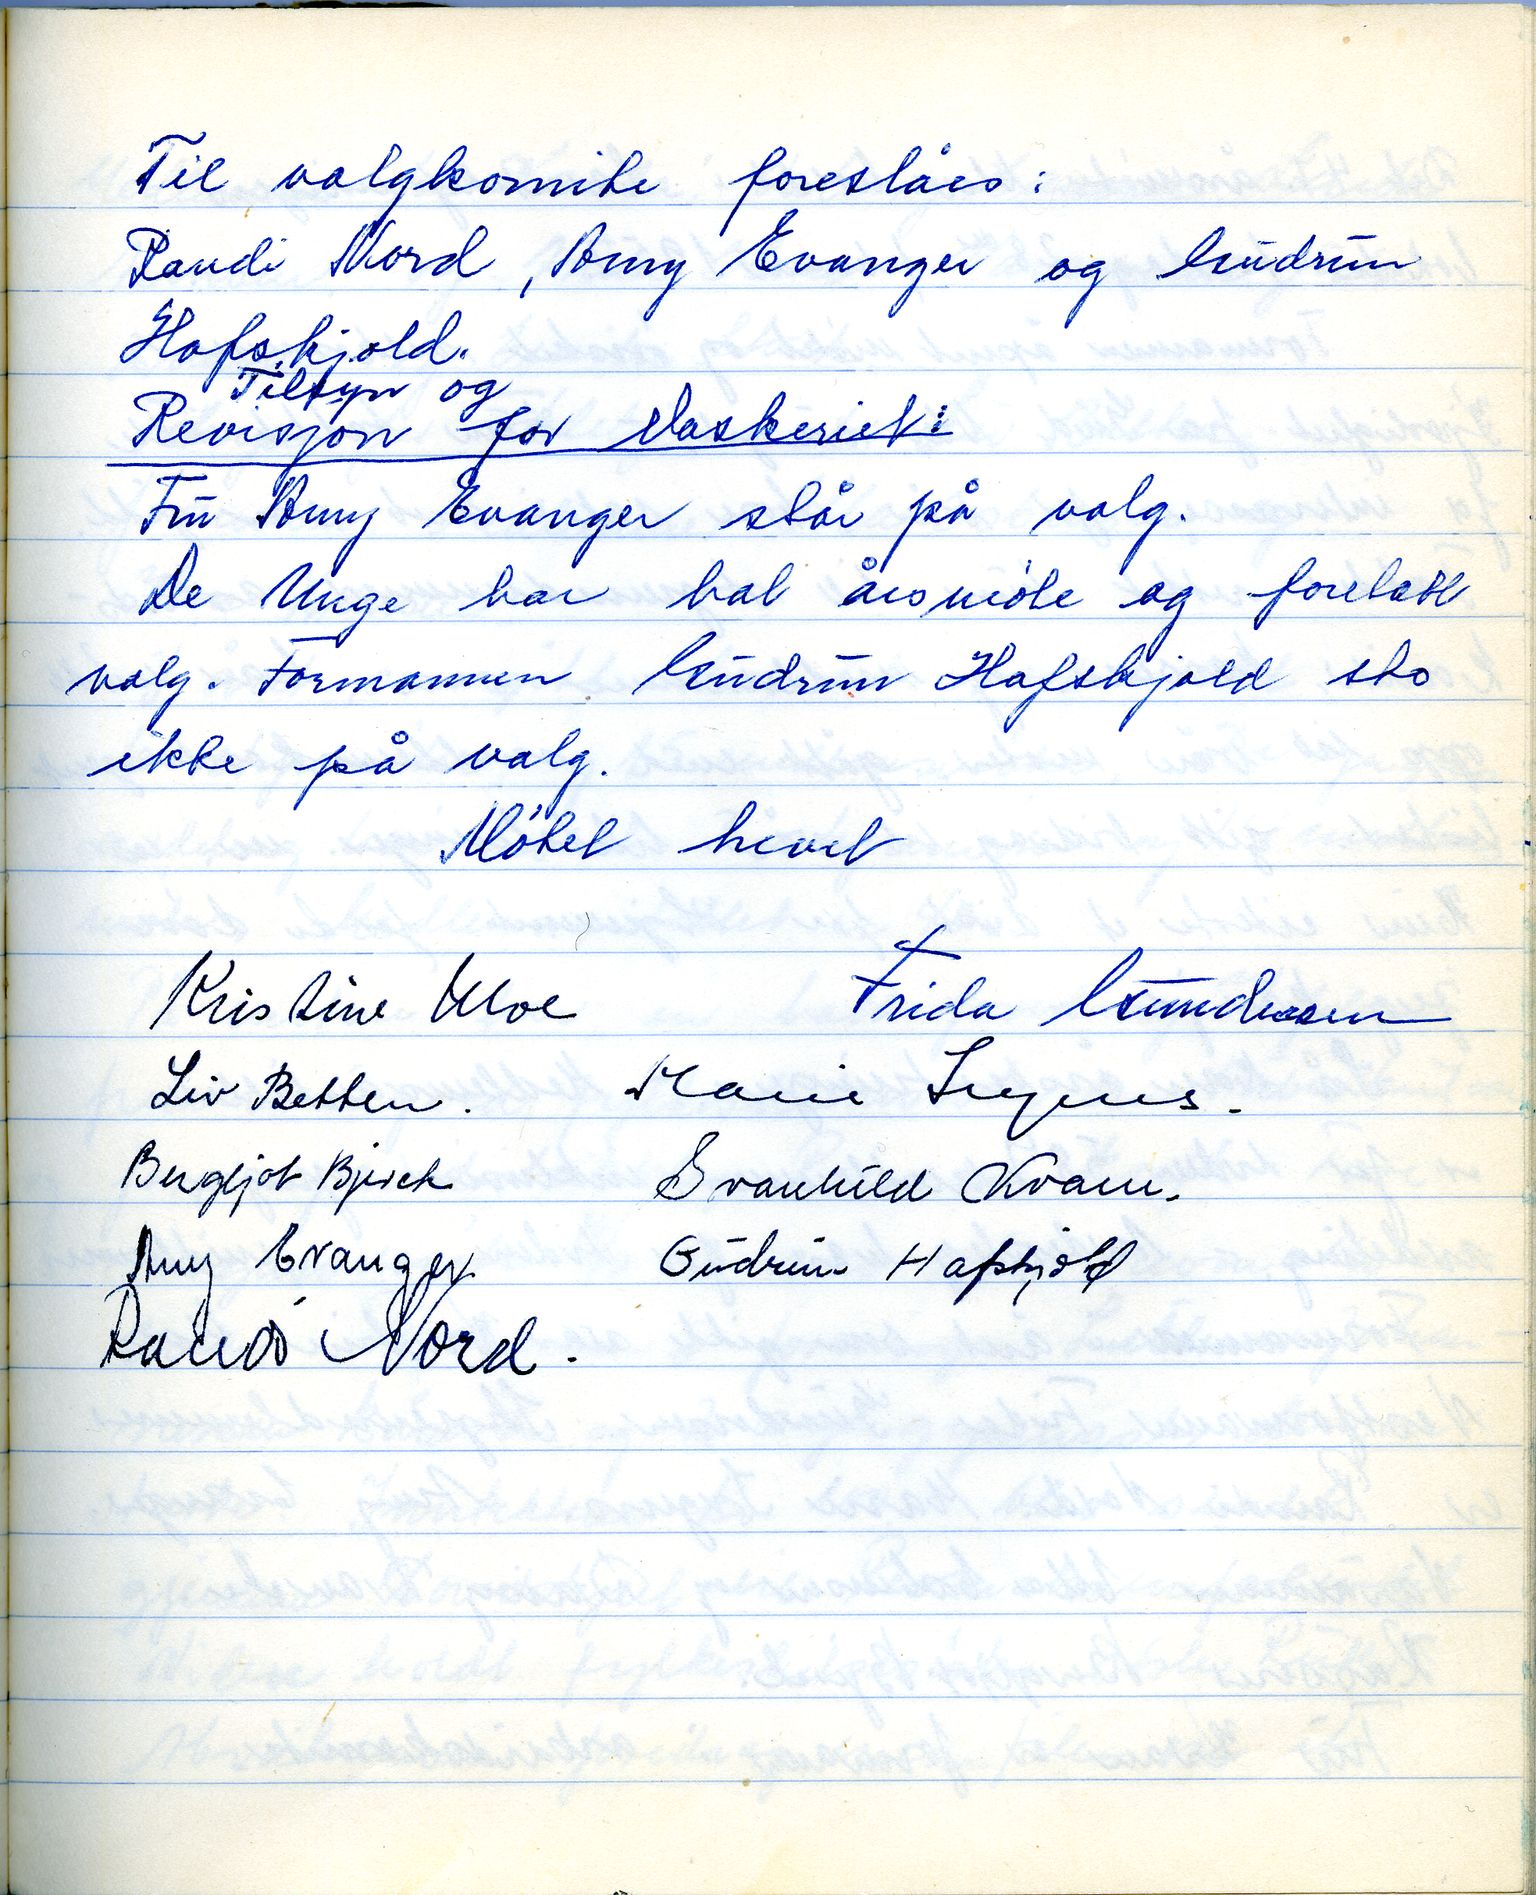 Til valgkomite foreslåes:
Randi Nord, Amy Evanger og Gudrun
Hafskjold.
Tilsyn og
Revisjon for Vaskeriet:
Fru Amy Evanger står på valg.
De Unge har hat årsmöte og foretatt
valg. Formannen Gudrun Hafskjold sto
ikke på valg.
Mötet hevet
Kristine Moe Frida Gundersen
Liv Betten. Marie
Bergljot Bjerck Svanhild Kvam.
Amy Evanger Gudrun Hafskjold
Randi Nord.